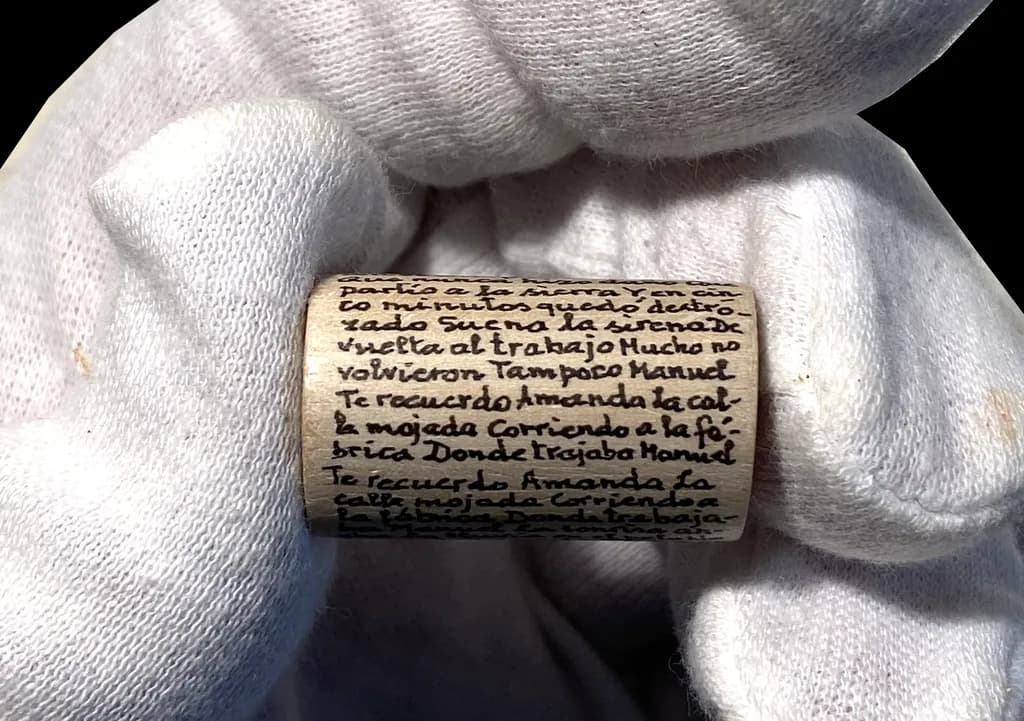 Que nunca
partió a la sierra Y en cin-
co minutos quedó destro-
zado Suena la sirena De
vuelta al trabajo Mucho no
volvieron Tampoco Manuel
Te recuerdo Amanda la cal-
le mojada Corriendo a la fá-
brica Donde trajaba Manuel
Te recuerdo Amanda La
calle mojada Corriendo a
la fábrica Donde trabaja-
ba Manuel La sonrisa an-